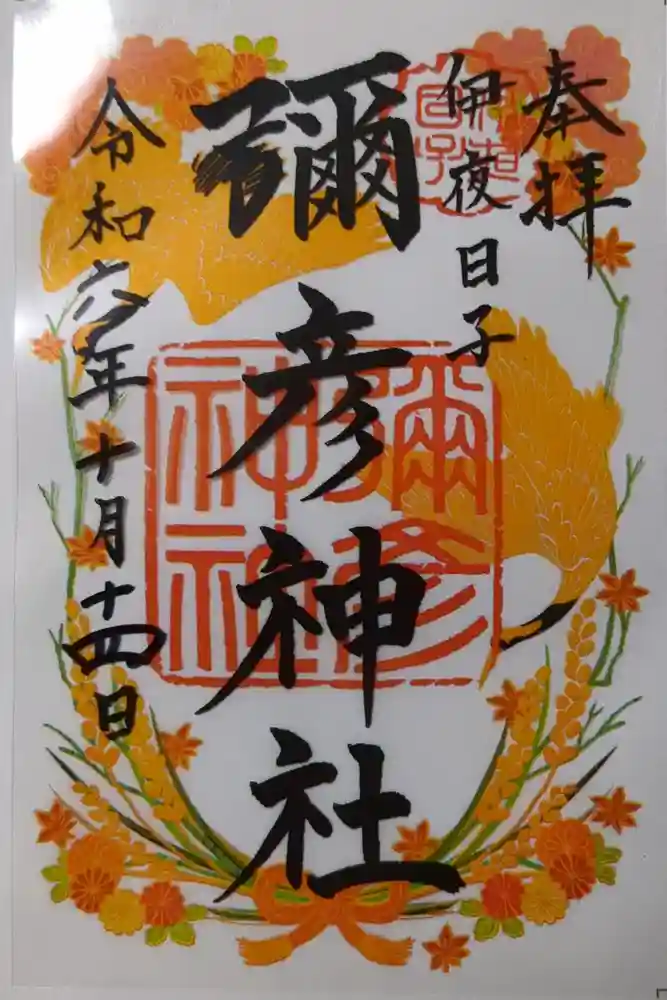 奉拝
伊夜日子
彌彦神社
彌彦神社
令和六年十月十四日